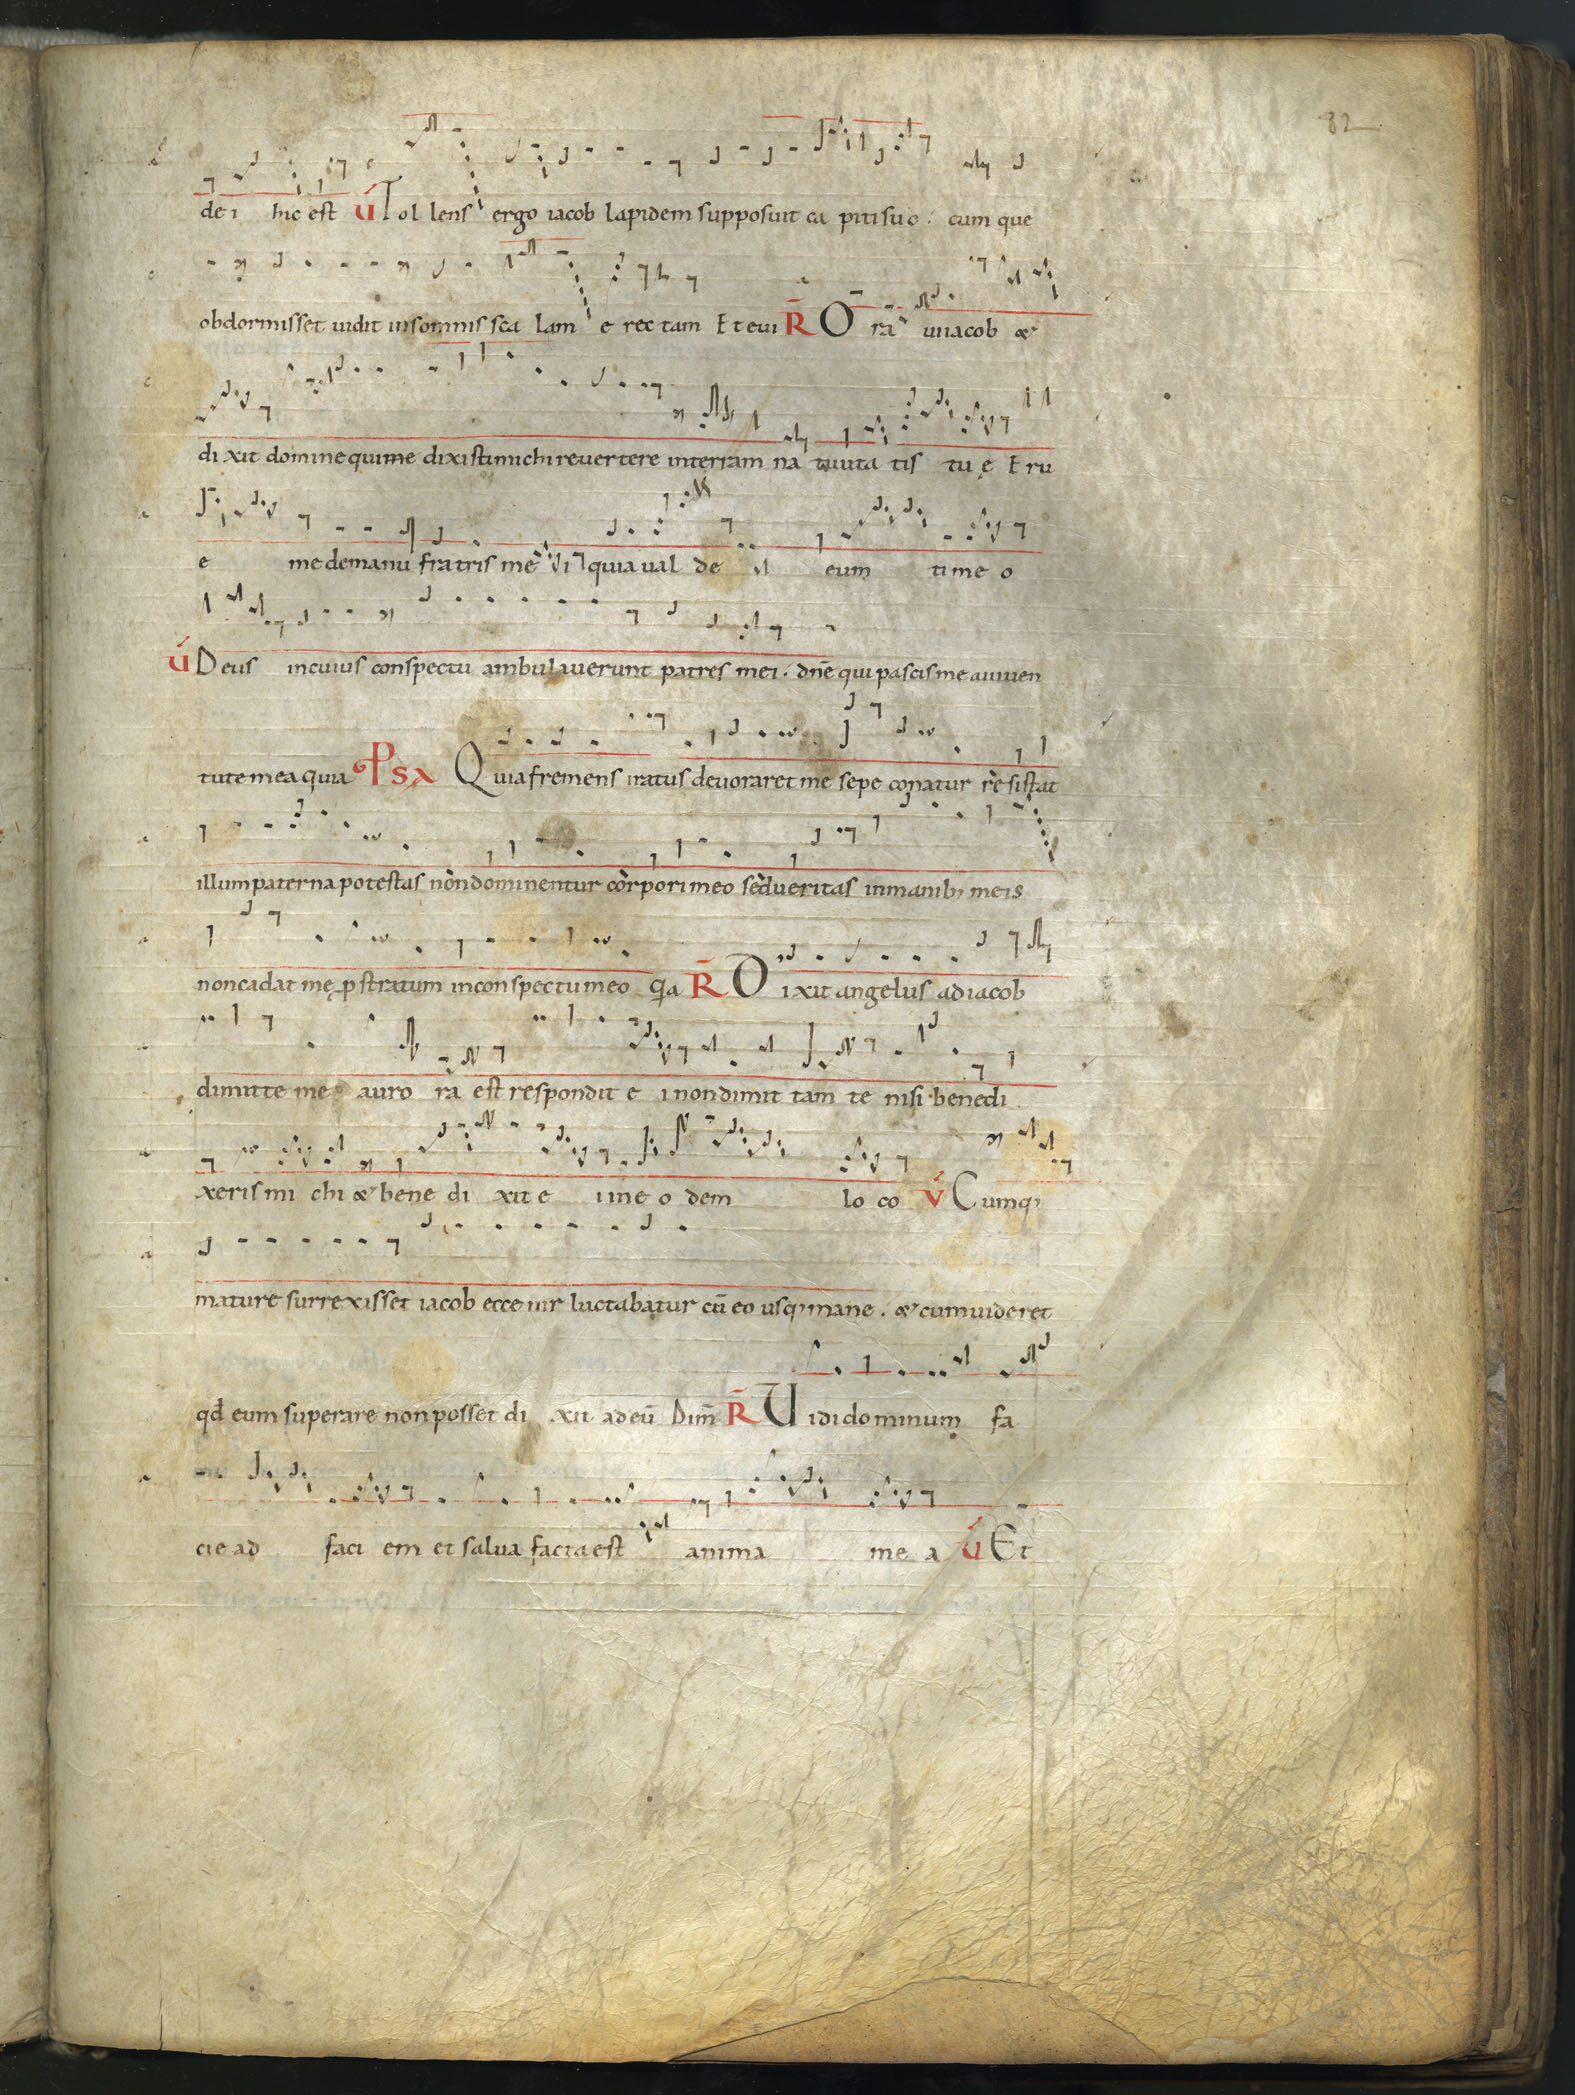 82
dei hic est V Tol lens ergo iacob lapidem supposuit ca piti suo . cum que
obdormisset uidit in somnis sca lam e rec tam Et eui R O ra uit iacob &
di xit domine qui me dixisti michi reuertere in terram na tiuita tis tu ę Eru
e me de manu fratris me i quia ual de eum time o
V Deus in cuius conspectu ambulauerunt patres mei . dñe qui pascis me a iuuen
tute mea quia Psa Quia fremens iratus deuoraret me sepe conatur re sistat
illum paterna potestas non dominentur corpori meo sed ueritas in manib; meis
non cadat mę pstratum in conspectu meo qa R D ixit angelus ad iacob
dimitte me auro ra est respondit e i non dimit tam te nisi benedi
xeris mi chi & bene di xit e i in e o dem lo co V Cumq;
mature surrexisset iacob ecce uir luctabatur cū eo usq; mane . & cum uideret
qd eum superare non posset di xit ad eū Dim R U idi dominum fa
cie ad faci em et salua facta est anima me a V Et